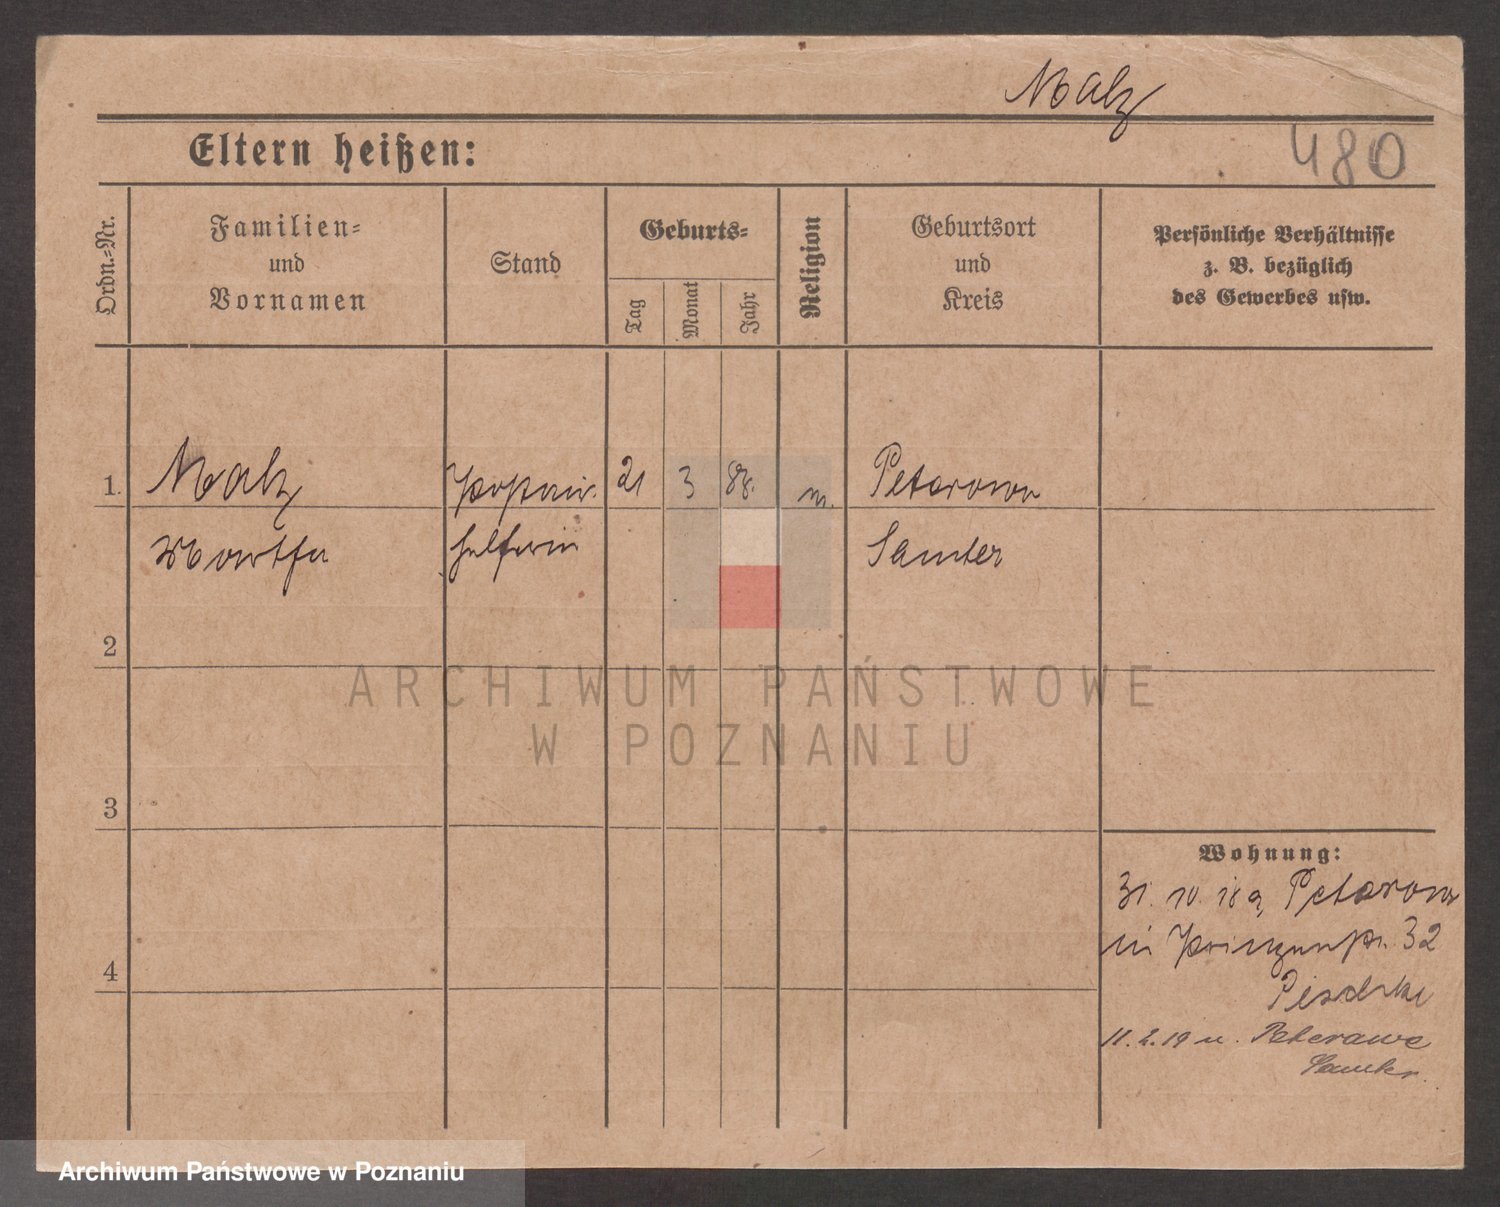 Malz
480
Eltern heißen:
Ordn.-Nr.
Familien-
und
Vornamen
Stand
Geburts-
Tag
Monat
Jahr
Religion
Geburtsort
und
Kreis
Persönliche Verhältnisse
z. B. bezüglich
des Gewerbes usw.
1.
Malz
21
3
88.
Peterawe
Martha
helferin
Samter
2
3
4
Wohnung:
31. 10. 18 Peterawe
32
11.2.19 n. Peterawe
Samter.
ARCHIWUM PAŃSTWOWE
W POZNANIU
Archiwum Państwowe w Poznaniu